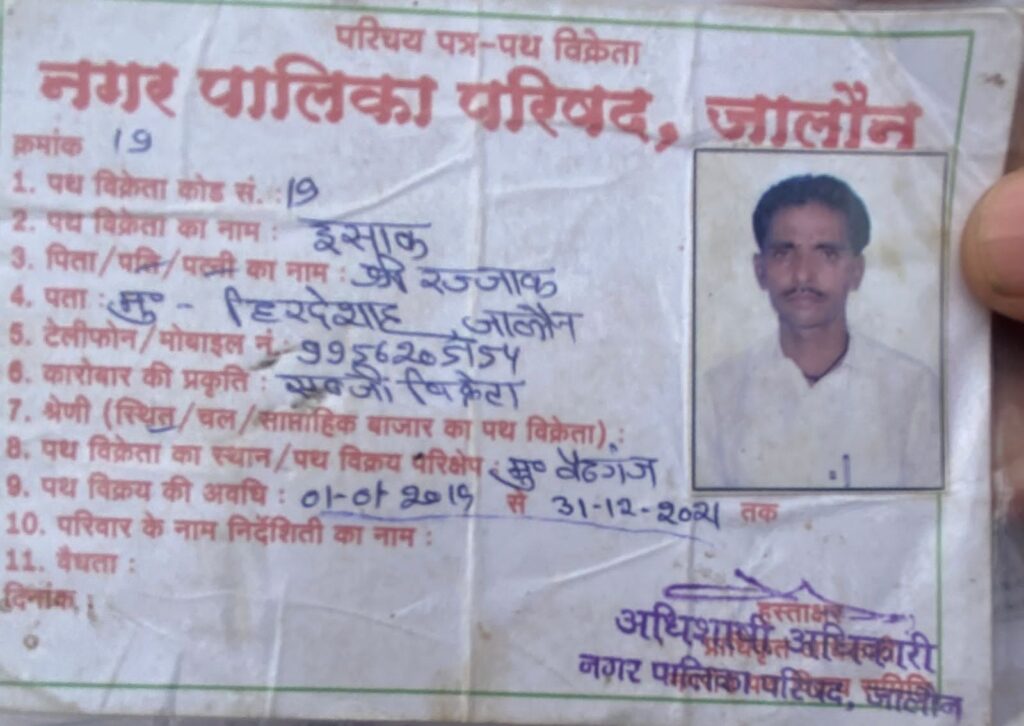 परिचय पत्र-पथ विक्रेता
नगर पालिका परिषद, जालौन
क्रमांक 19
1. पथ विक्रेता कोड सं. :19
2. पथ विक्रेता का नाम : इसाक
3. पिता/पति/पत्नी का नाम : श्री रज्जाक
4. पता : मु० - हिरदेशाह जालौन
5. टेलीफोन/मोबाइल नं.
6. कारोबार की प्रकृति : सब्जी विक्रेता
7. श्रेणी (स्थित/चल/साप्ताहिक बाजार का पथ विक्रेता) :
8. पथ विक्रेता का स्थान/पथ विक्रय परिक्षेप : मु०
9. पथ विक्रय की अवधि : 01-01 2019 से 31-12-2021 तक
10. परिवार के नाम निर्देशिती का नाम :
11. वैधता :
दिनांक :
हस्ताक्षर
अधिशाषी अधिकारी
नगर पालिका परिषद, जालौन